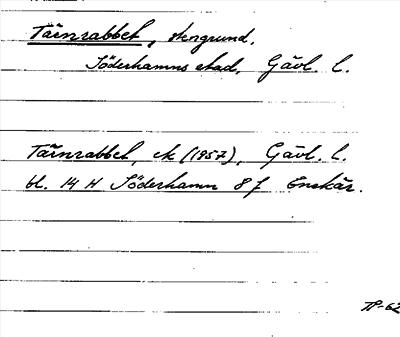 Tärnrabbet, stengrund.
Söderhamns stad, Gävl. l.
Tärnrabbet, ek (1957), Gävl. l.
bl. 14 H Söderhamn 8 f Enskär.
TP-62